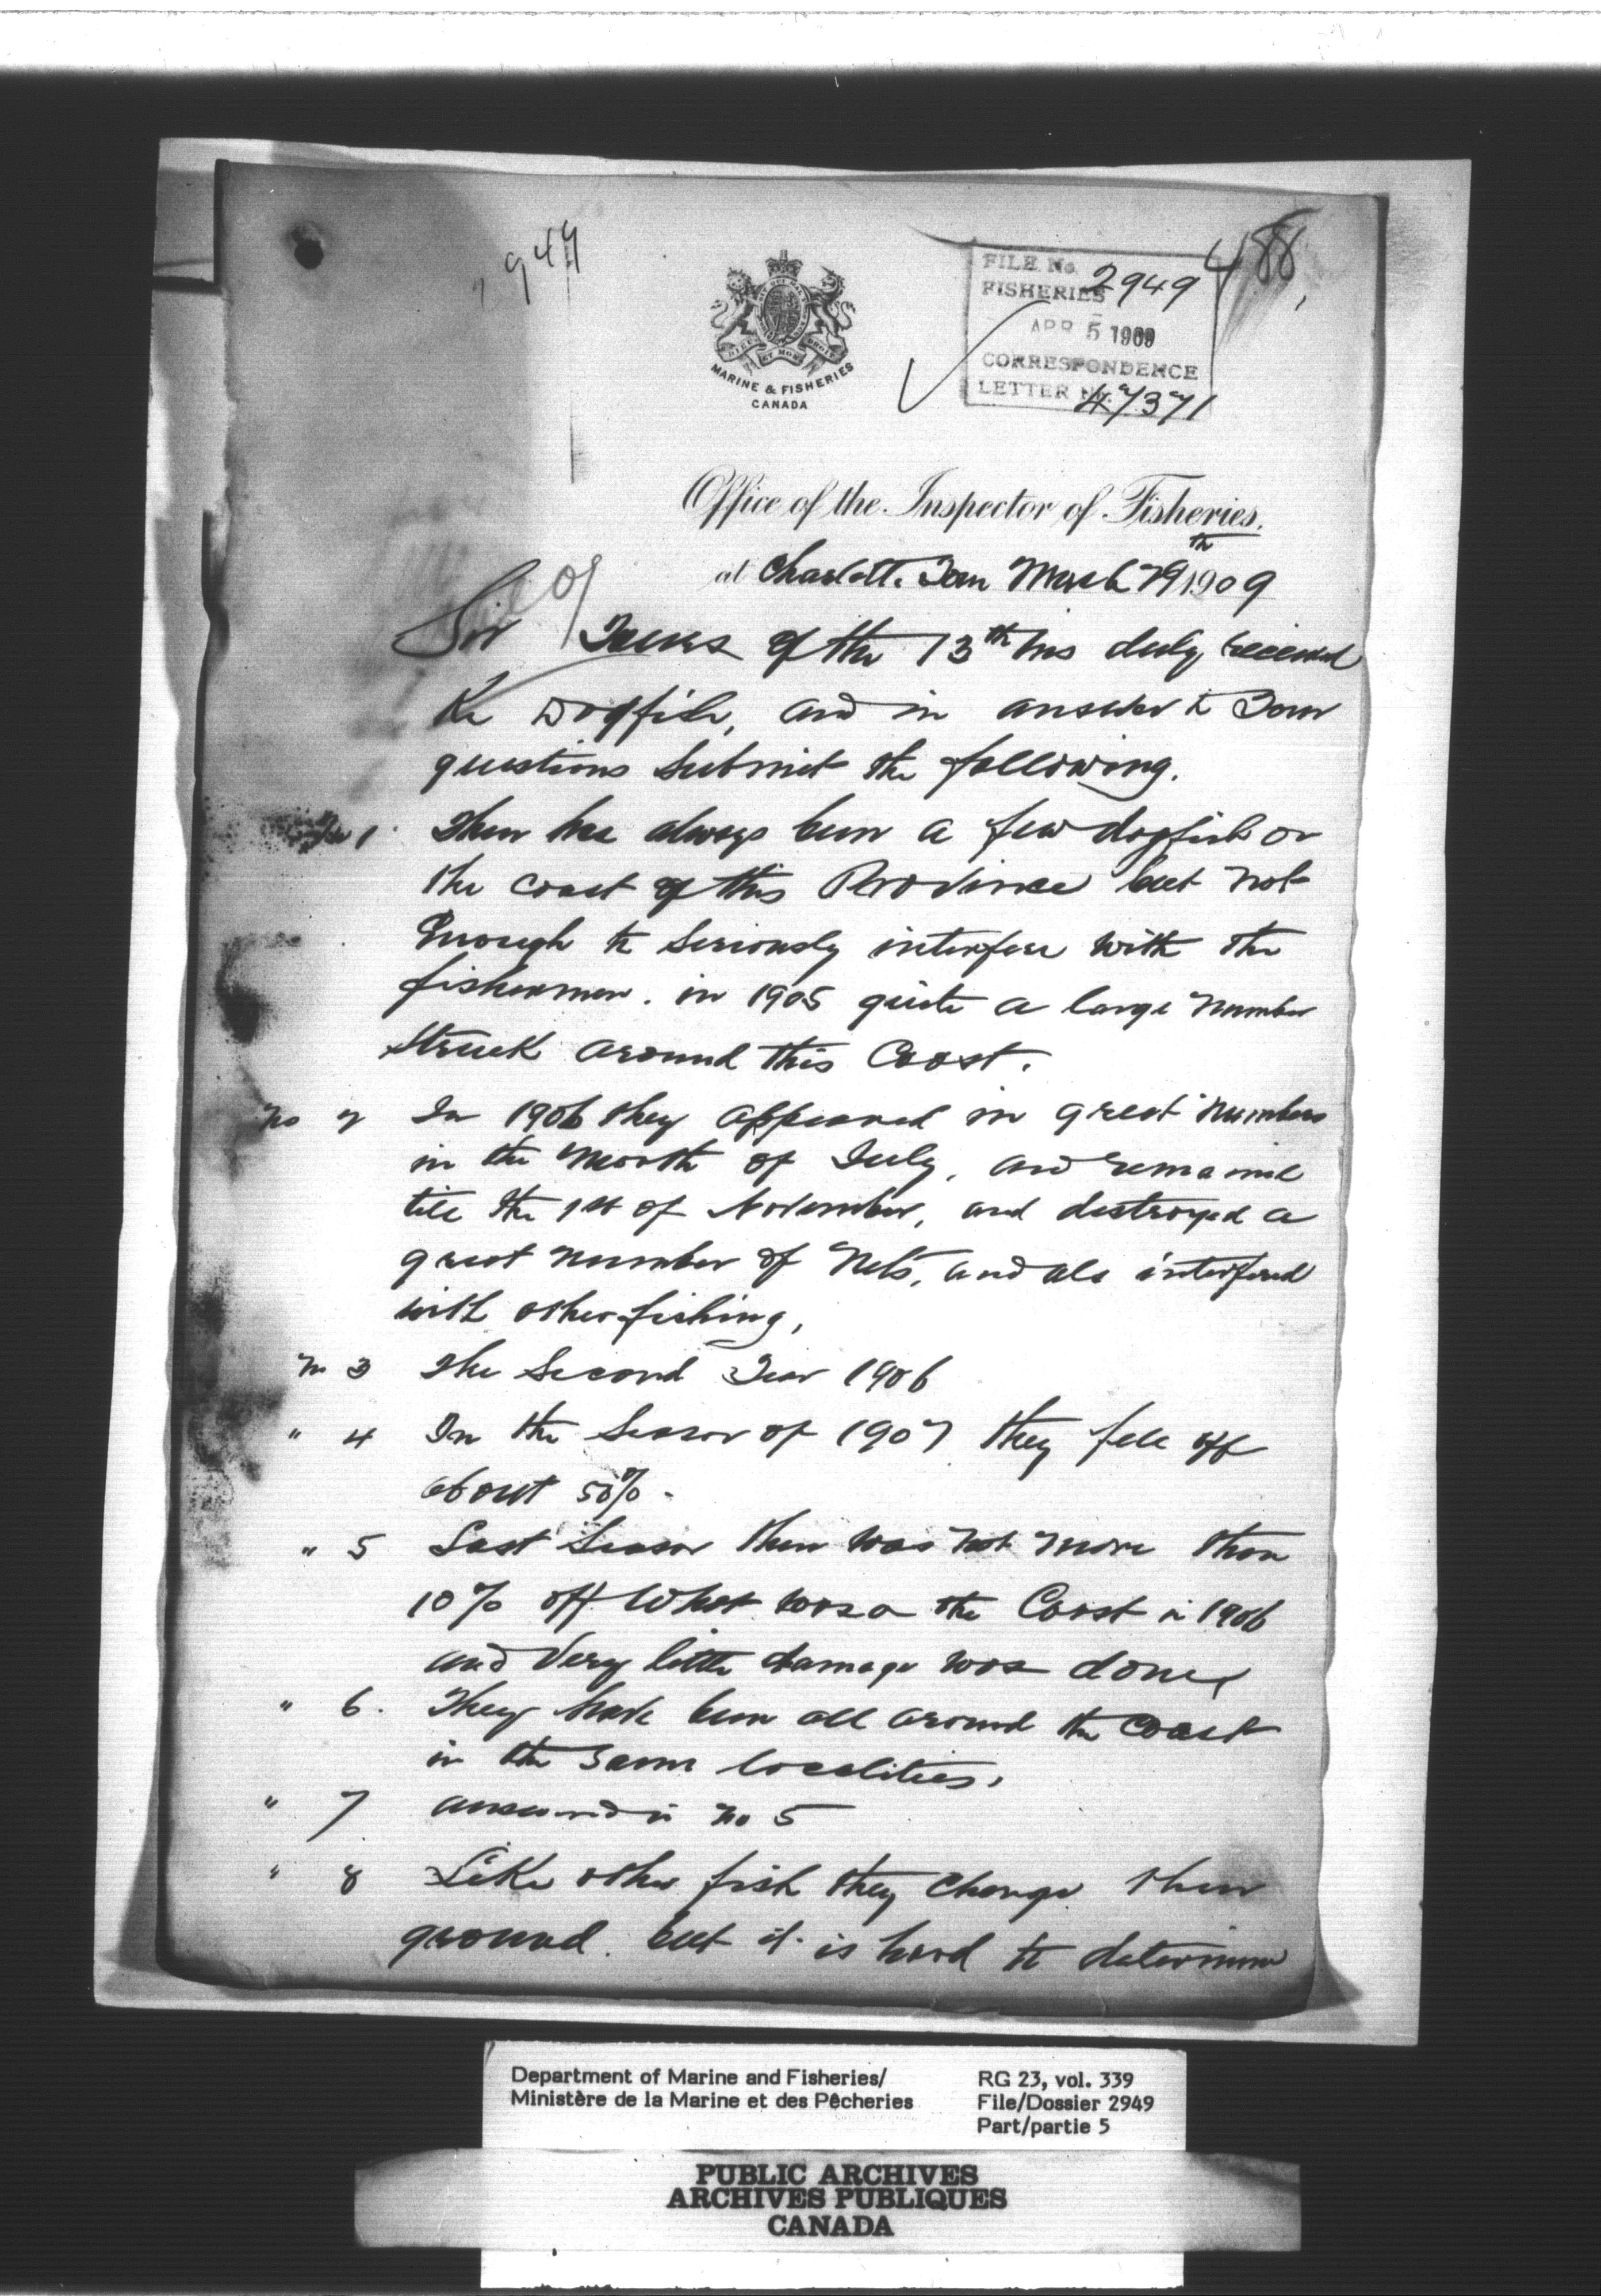 2949
488
FILE No. 2949
FISHERIES
APR 5 1909
CORRESPONDENCE
LETTER No. 47371
DIEU ET MON DROIT
MARINE & FISHERIES
CANADA
Office of the Inspector of Fisheries,
at Charlotte Town March 29th 1909
Sir Yours of the 13th ins duly received
Re Dogfish, and in answer to Your
questions Submit the following.
No 1 There has always been a few dogfish on
the Coast of this Province but not
Enough to Seriously interfere with the
fishermen. in 1905 quite a large Number
Struck around this Coast.
No 2 In 1906 they appeared in great numbers
in the Month of July, and remained
till the 1st of November, and destroyed a
great number of Nets, and als interfered
with other fishing,
No 3 The Second Year 1906
" 4 In the Season of 1907 they fell off
about 50%.
" 5 Last Season there was not more than
10% off What was on the Coast in 1906
and Very little damage was done,
" 6. They have been all around the Coast
in the Same localities,
" 7 answered in no 5
" 8 Like other fish they Change their
ground. but it is hard to determine
Department of Marine and Fisheries/
Ministère de la Marine et des Pêcheries
RG 23, vol. 339
File/Dossier 2949
Part/partie 5
PUBLIC ARCHIVES
ARCHIVES PUBLIQUES
CANADA